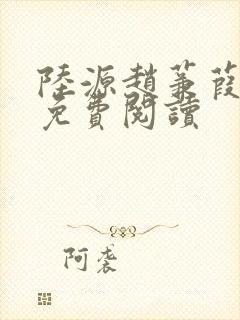 陸源趙蒹葭
免費閱讀
阿袭